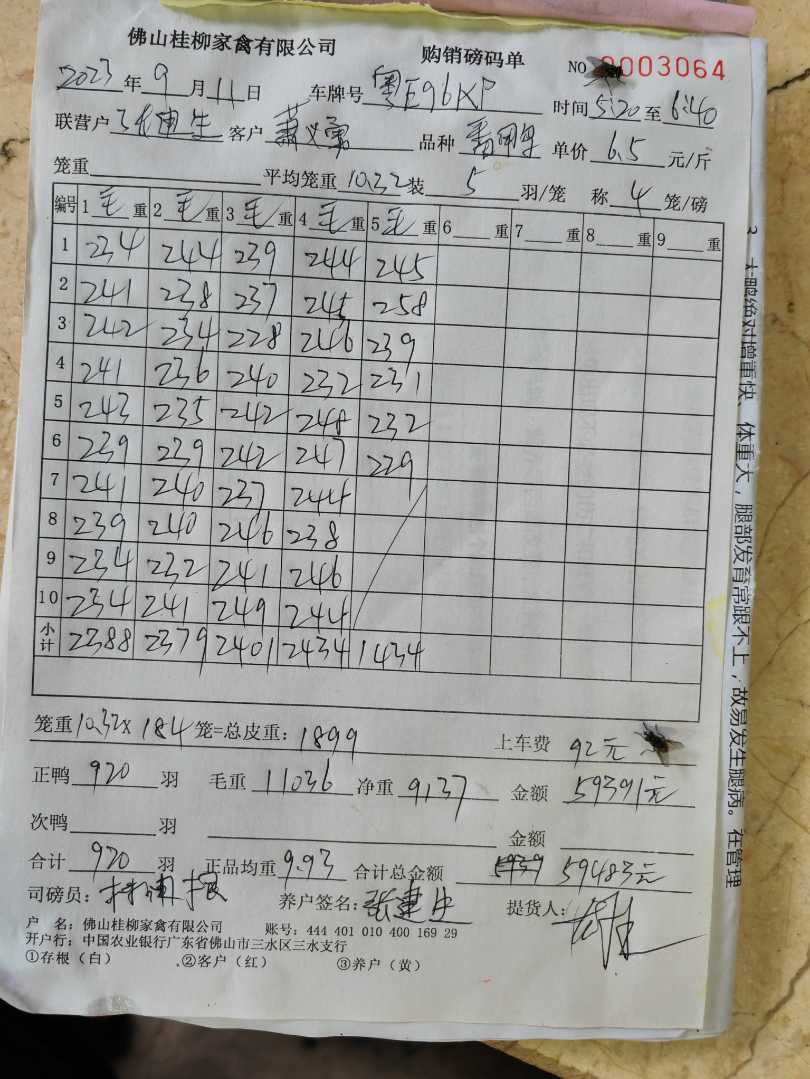 佛山桂柳家禽有限公司 购销磅码单 NO 0003064
2023年9月11日 车牌号 粤E96KP 时间5:20至6:40
联营户 张建生 客户 萧义 品种 单价 6.5 元/斤
笼重 平均笼重 10.32 装 5 羽/笼 称 4 笼/磅
编号 1 毛 重 2 毛 重 3 毛 重 4 毛 重 5 毛 重 6 重 7 重 8 重 9 重
1 234 244 239 244 245
2 241 238 237 245 258
3 242 234 228 246 239
4 241 236 240 232 231
5 243 235 242 248 232
6 239 239 242 247 229
7 241 240 237 244
8 239 240 246 238
9 234 232 241 246
10 234 241 249 244
小计 2388 2379 2401 2434 1434
笼重10.32×184笼=总皮重:1899 上车费 92元
正鸭 920 羽 毛重 11036 净重 9137 金额 59391元
次鸭 羽 金额
合计 920 羽 正品均重 9.93 合计总金额 59483元
司磅员: 养户签名:张建生 提货人:
户 名:佛山桂柳家禽有限公司 账号:444 401 010 400 169 29
开户行:中国农业银行广东省佛山市三水区三水支行
①存根(白) ②客户(红) ③养户(黄)
大鸭绝对增重快、体重大,腿部发育常跟不上,故易发生腿病。在管理